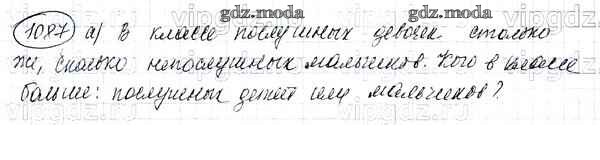 gdz.moda gdz.moda
1087 а) В классе послушных девочек столько
же, сколько непослушных мальчиков. Кого в классе
больше: послушных детей или мальчиков?
gdz.moda gdz.moda